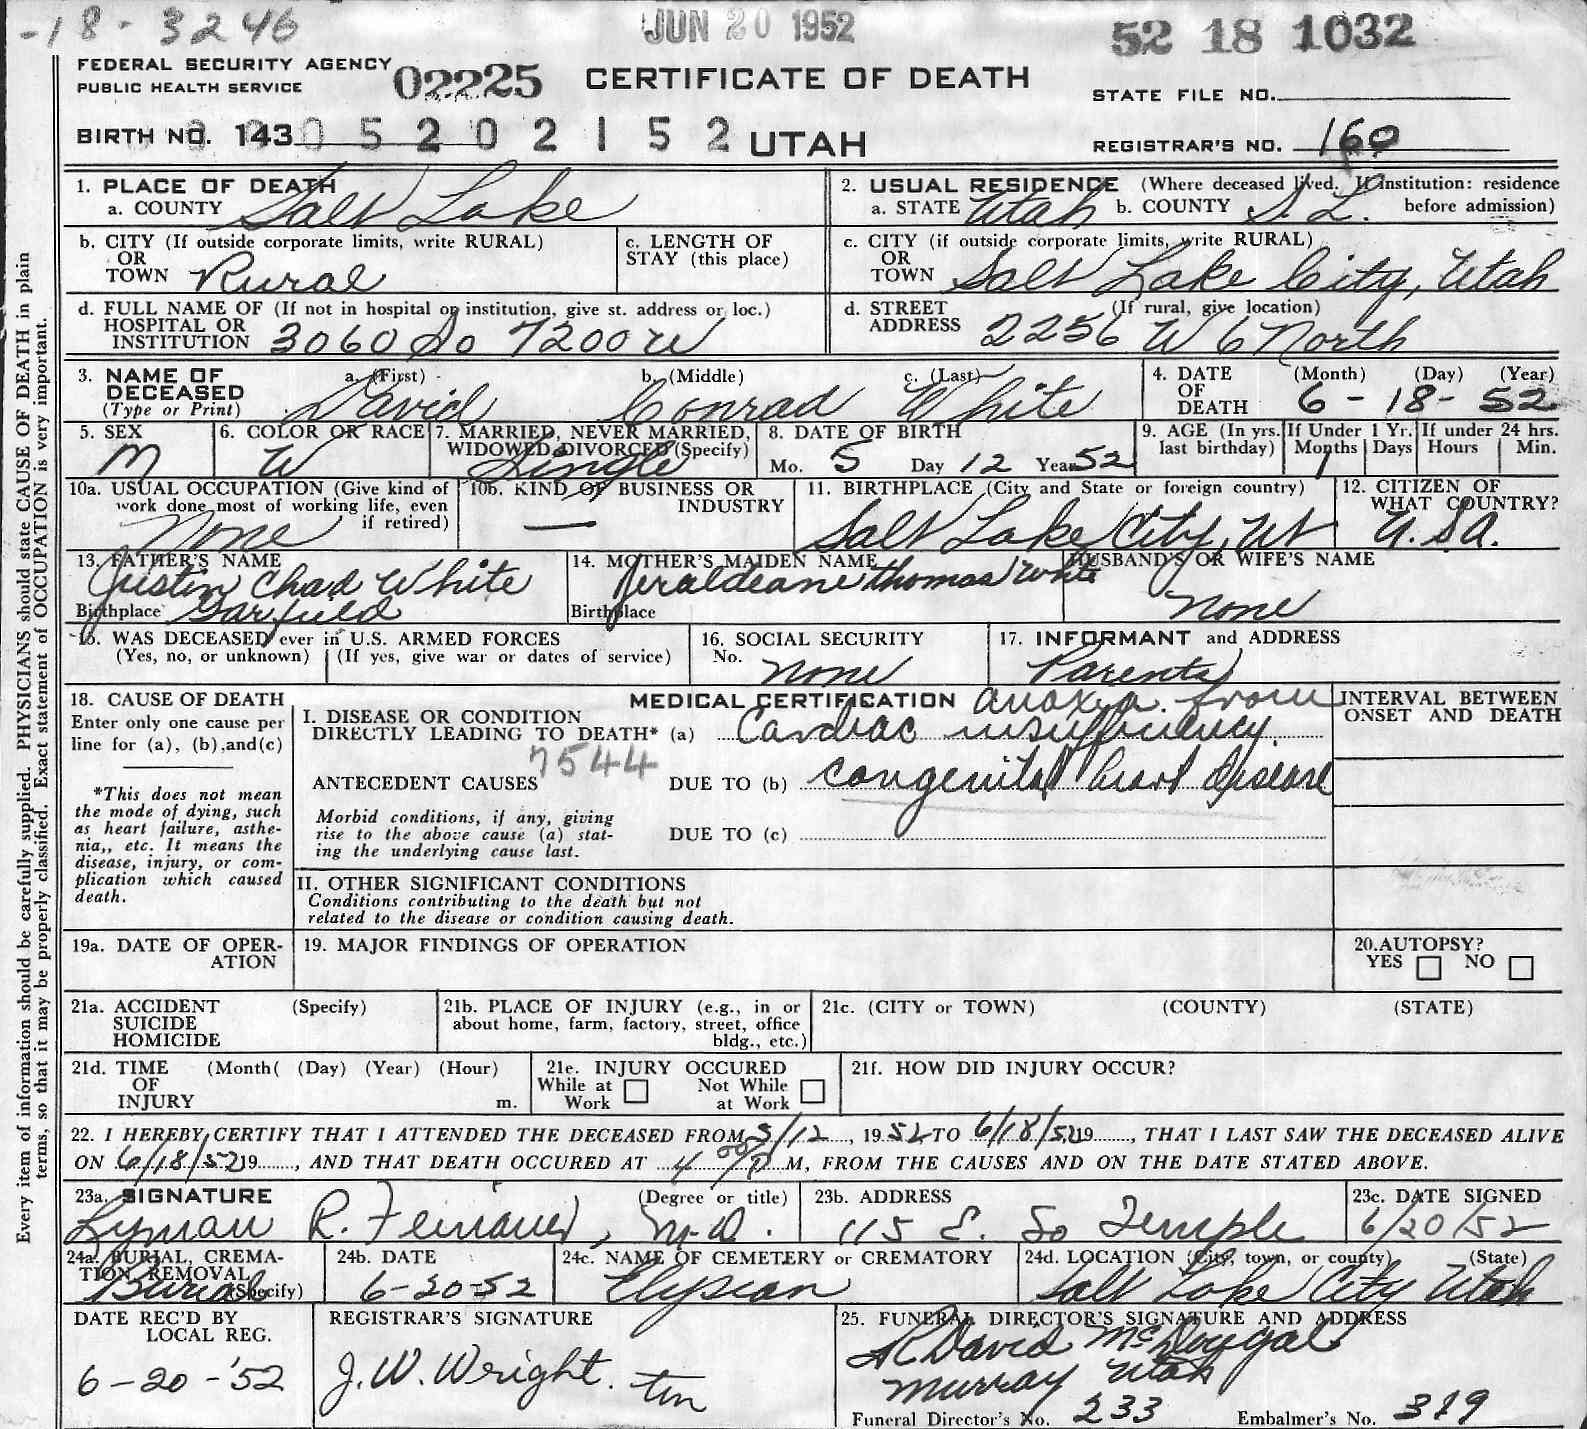 -18-3246
JUN 20 1952
52 18 1032
FEDERAL SECURITY AGENCY
PUBLIC HEALTH SERVICE
02225
CERTIFICATE OF DEATH
STATE FILE NO.
BIRTH NO. 143 0 5 2 0 2 1 5 2
UTAH
REGISTRAR'S NO. 160
1. PLACE OF DEATH
a. COUNTY Salt Lake
2. USUAL RESIDENCE (Where deceased lived. If institution: residence before admission)
a. STATE Utah b. COUNTY S. L.
b. CITY (If outside corporate limits, write RURAL)
OR
TOWN Rural
c. LENGTH OF
STAY (this place)
c. CITY (if outside corporate limits, write RURAL)
OR
TOWN Salt Lake City, Utah
d. FULL NAME OF (If not in hospital or institution, give st. address or loc.)
HOSPITAL OR
INSTITUTION 3060 So 7200 W
d. STREET (If rural, give location)
ADDRESS 2256 W 6 North
3. NAME OF DECEASED
(Type or Print)
a. (First) b. (Middle) c. (Last)
David Conrad White
4. DATE OF DEATH
(Month) (Day) (Year)
6-18-52
5. SEX
M
6. COLOR OR RACE
W
7. MARRIED, NEVER MARRIED,
WIDOWED, DIVORCED (Specify)
Single
8. DATE OF BIRTH
Mo. 5 Day 12 Year 52
9. AGE (In yrs. last birthday)
If Under 1 Yr.
Months Days
1
If under 24 hrs.
Hours Min.
10a. USUAL OCCUPATION (Give kind of
work done most of working life, even
if retired)
None
10b. KIND OF BUSINESS OR
INDUSTRY
—
11. BIRTHPLACE (City and State or foreign country)
Salt Lake City, Ut
12. CITIZEN OF
WHAT COUNTRY?
U.S.A.
13. FATHER'S NAME
Justin Chad White
Birthplace Garfield
14. MOTHER'S MAIDEN NAME
Jeraldeane Thomas White
Birthplace
HUSBAND'S OR WIFE'S NAME
None
15. WAS DECEASED ever in U.S. ARMED FORCES
(Yes, no, or unknown) (If yes, give war or dates of service)
16. SOCIAL SECURITY
No. none
17. INFORMANT and ADDRESS
Parents
18. CAUSE OF DEATH
Enter only one cause per
line for (a), (b), and (c)
*This does not mean
the mode of dying, such
as heart failure, asthe-
nia,, etc. It means the
disease, injury, or com-
plication which caused
death.
MEDICAL CERTIFICATION
I. DISEASE OR CONDITION
DIRECTLY LEADING TO DEATH* (a) anoxia from
Cardiac insufficiency.
7544
ANTECEDENT CAUSES DUE TO (b) congenital heart disease
Morbid conditions, if any, giving
rise to the above cause (a) stat-
ing the underlying cause last.
DUE TO (c)
INTERVAL BETWEEN
ONSET AND DEATH
II. OTHER SIGNIFICANT CONDITIONS
Conditions contributing to the death but not
related to the disease or condition causing death.
19a. DATE OF OPER-
ATION
19. MAJOR FINDINGS OF OPERATION
20. AUTOPSY?
YES NO
21a. ACCIDENT (Specify)
SUICIDE
HOMICIDE
21b. PLACE OF INJURY (e.g., in or
about home, farm, factory, street, office
bldg., etc.)
21c. (CITY or TOWN) (COUNTY) (STATE)
21d. TIME (Month( (Day) (Year) (Hour)
OF
INJURY m.
21e. INJURY OCCURED
While at Work Not While at Work
21f. HOW DID INJURY OCCUR?
22. I HEREBY CERTIFY THAT I ATTENDED THE DECEASED FROM 5/12, 1952 TO 6/18/52 19......, THAT I LAST SAW THE DECEASED ALIVE
ON 6/18/52 19......, AND THAT DEATH OCCURED AT 4 00 P M, FROM THE CAUSES AND ON THE DATE STATED ABOVE.
23a. SIGNATURE (Degree or title)
Lyman R. , M.D.
23b. ADDRESS
115 E. So Temple
23c. DATE SIGNED
6/20/52
24a. BURIAL, CREMA-
TION REMOVAL
(Specify)
Burial
24b. DATE
6-20-52
24c. NAME OF CEMETERY or CREMATORY
Elysian
24d. LOCATION (City, town, or county) (State)
Salt Lake City Utah
DATE REC'D BY
LOCAL REG.
6-20-'52
REGISTRAR'S SIGNATURE
J. W. Wright. tm
25. FUNERAL DIRECTOR'S SIGNATURE AND ADDRESS
R David McDougal
Murray Utah
Funeral Director's No. 233 Embalmer's No. 319
Every item of information should be carefully supplied. PHYSICIANS should state CAUSE OF DEATH in plain
terms, so that it may be properly classified. Exact statement of OCCUPATION is very important.